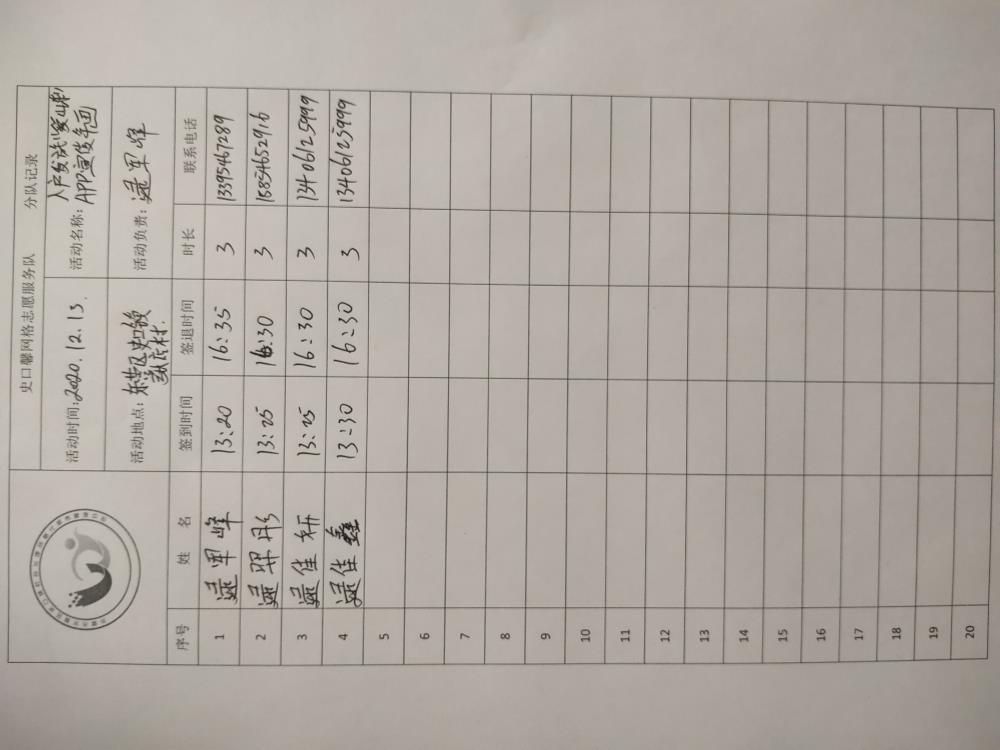 史口馨网格志愿服务队 分队记录
活动时间:2020.12.13. 活动名称:入户发放
APP宣传年画
活动地点:东营区史口镇
村. 活动负责:逯军峰
序号 姓 名 签到时间 签退时间 时长 联系电话
1 逯军峰 13:20 16:35 3 13395467289
2 逯羿彤 13:25 16:30 3 15854652916
3 逯佳 13:25 16:30 3 13406125999
4 逯佳鑫 13:30 16:30 3 13406125999
5
6
7
8
9
10
11
12
13
14
15
16
17
18
19
20